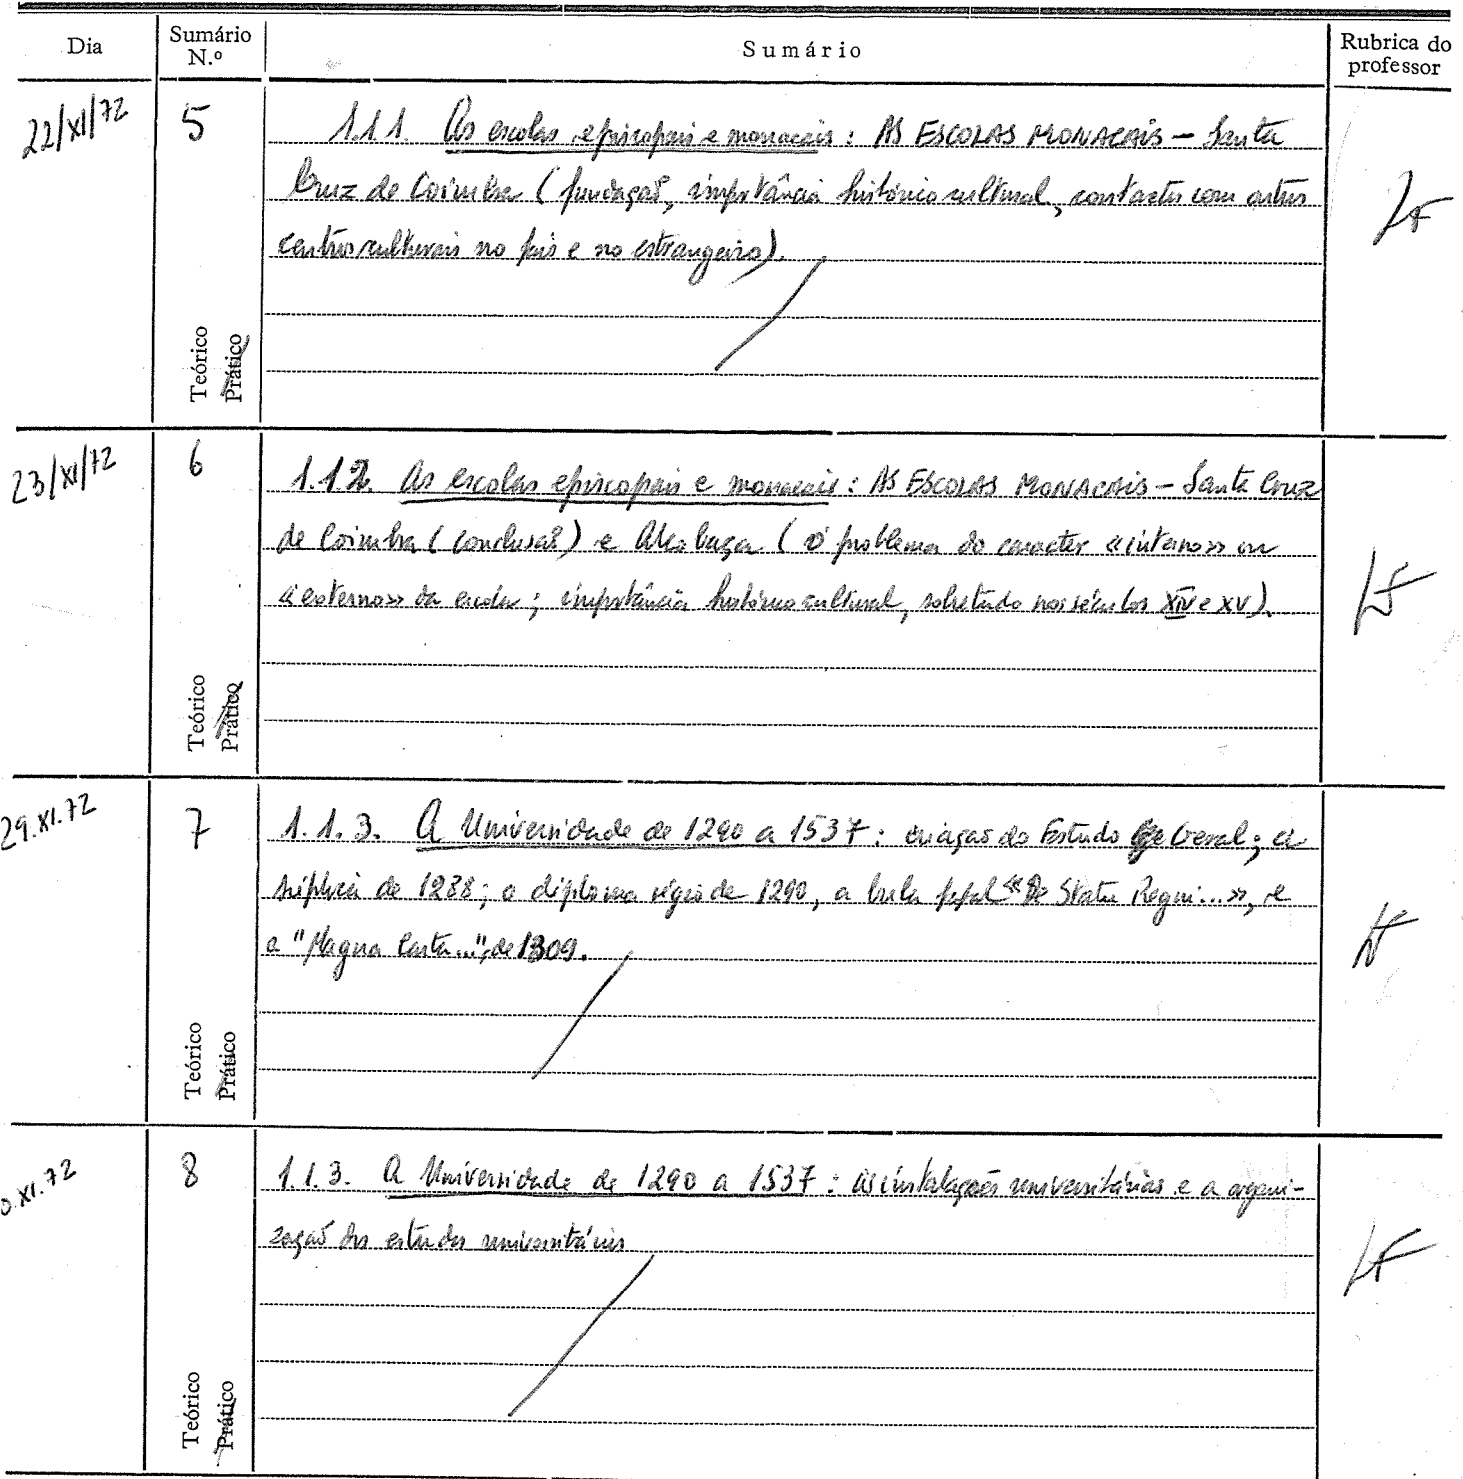 Dia
Sumário N.º
Sumário
Rubrica do professor
22/XI/72
5
1.1.1. As escolas episcopais e monacais: AS ESCOLAS MONACAIS – Santa
Cruz de Coimbra (fundação, importância histórico cultural, contactos com outros
centros culturais no país e no estrangeiro).
Teórico
Prático
23/XI/72
6
1.1.2. As escolas episcopais e monacais: AS ESCOLAS MONACAIS – Santa Cruz
de Coimbra (conclusão) e Alcobaça (o problema do caracter «interno» ou
«externo» da escola; importância histórico cultural, sobretudo nos séculos XIV e XV).
Teórico
Prático
29.XI.72
7
1.1.3. A Universidade de 1290 a 1537: criação do Estudo Geral; a
súplica de 1288; o diploma régio de 1290, a bula papal «De Statu Regni...», e
a "Magna Carta...", de 1309.
Teórico
Prático
0.XI.72
8
1.1.3. A Universidade de 1290 a 1537: as instalações universitárias e a organi-
zação dos estudos universitários
Teórico
Prático